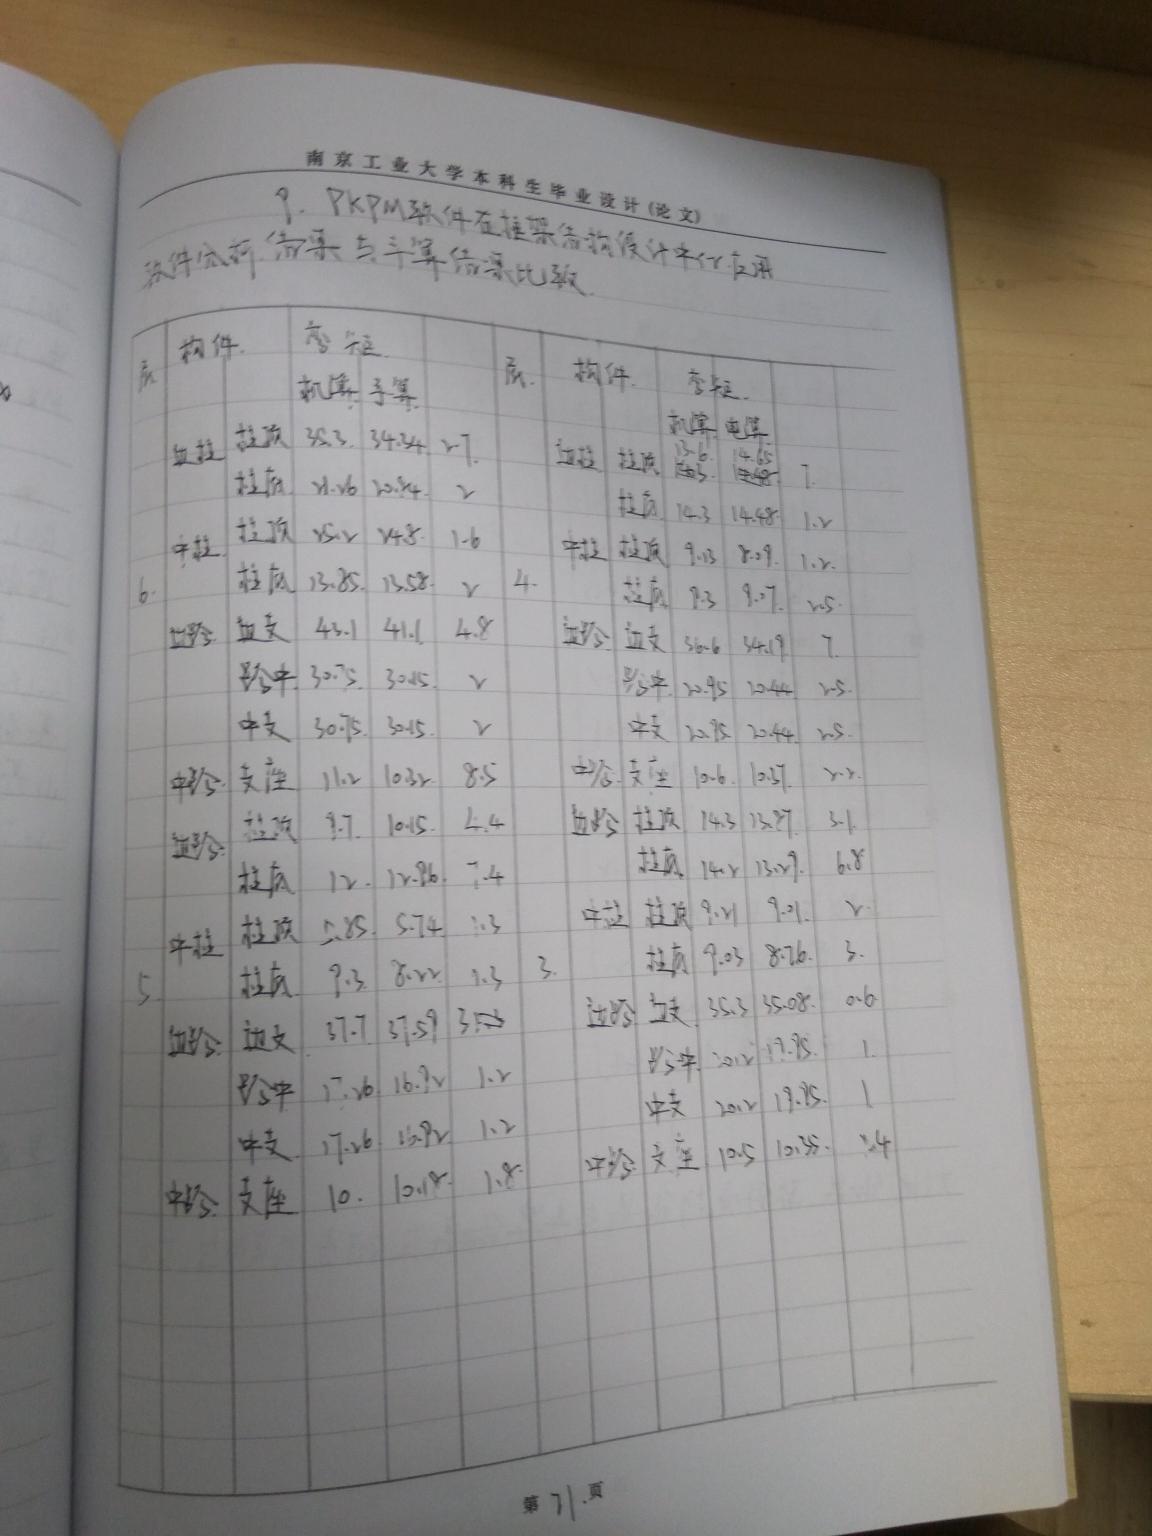 南京工业大学本科生毕业设计(论文)
9. PKPM软件在框架结构设计中的应用
软件分析结果与手算结果比较
层 构件 弯矩 层 构件 弯矩
机算 手算 机算 电算
边柱 柱顶 35.3 34.34 2.7 边柱 柱顶 13.6 14.65 7
柱底 20.84 2 柱底 14.3 14.48 1.2
中柱 柱顶 25.2 24.8 1.6 中柱 柱顶 9.13 8.09 1.2
6 柱底 13.85 13.58 2 4 柱底 9.3 9.07 2.5
边跨 边支 43.1 41.1 4.8 边跨 边支 36.6 34.19 7
跨中 30.75 30.15 2 跨中 20.95 20.44 2.5
中支 30.75 30.15 2 中支 20.95 20.44 2.5
中跨 支座 11.2 10.32 8.5 中跨 支座 10.6 10.37 2.2
边跨 柱顶 9.7 10.15 4.4 边跨 柱顶 14.3 13.87 3.1
柱底 12 12.96 7.4 柱底 14.2 13.29 6.8
中柱 柱顶 5.85 5.74 中柱 柱顶 9.21 9.01 2
5 柱底 9.3 8.22 1.3 3 柱底 9.03 8.76 3
边跨 边支 37.7 37.59 边跨 边支 35.3 35.08 0.6
跨中 17.26 16.92 1.2 跨中 20.2 19.95 1
中支 17.26 16.92 1.2 中支 20.2 19.95 1
中跨 支座 10 10.18 1.8 中跨 支座 10.5 10.35
第71页